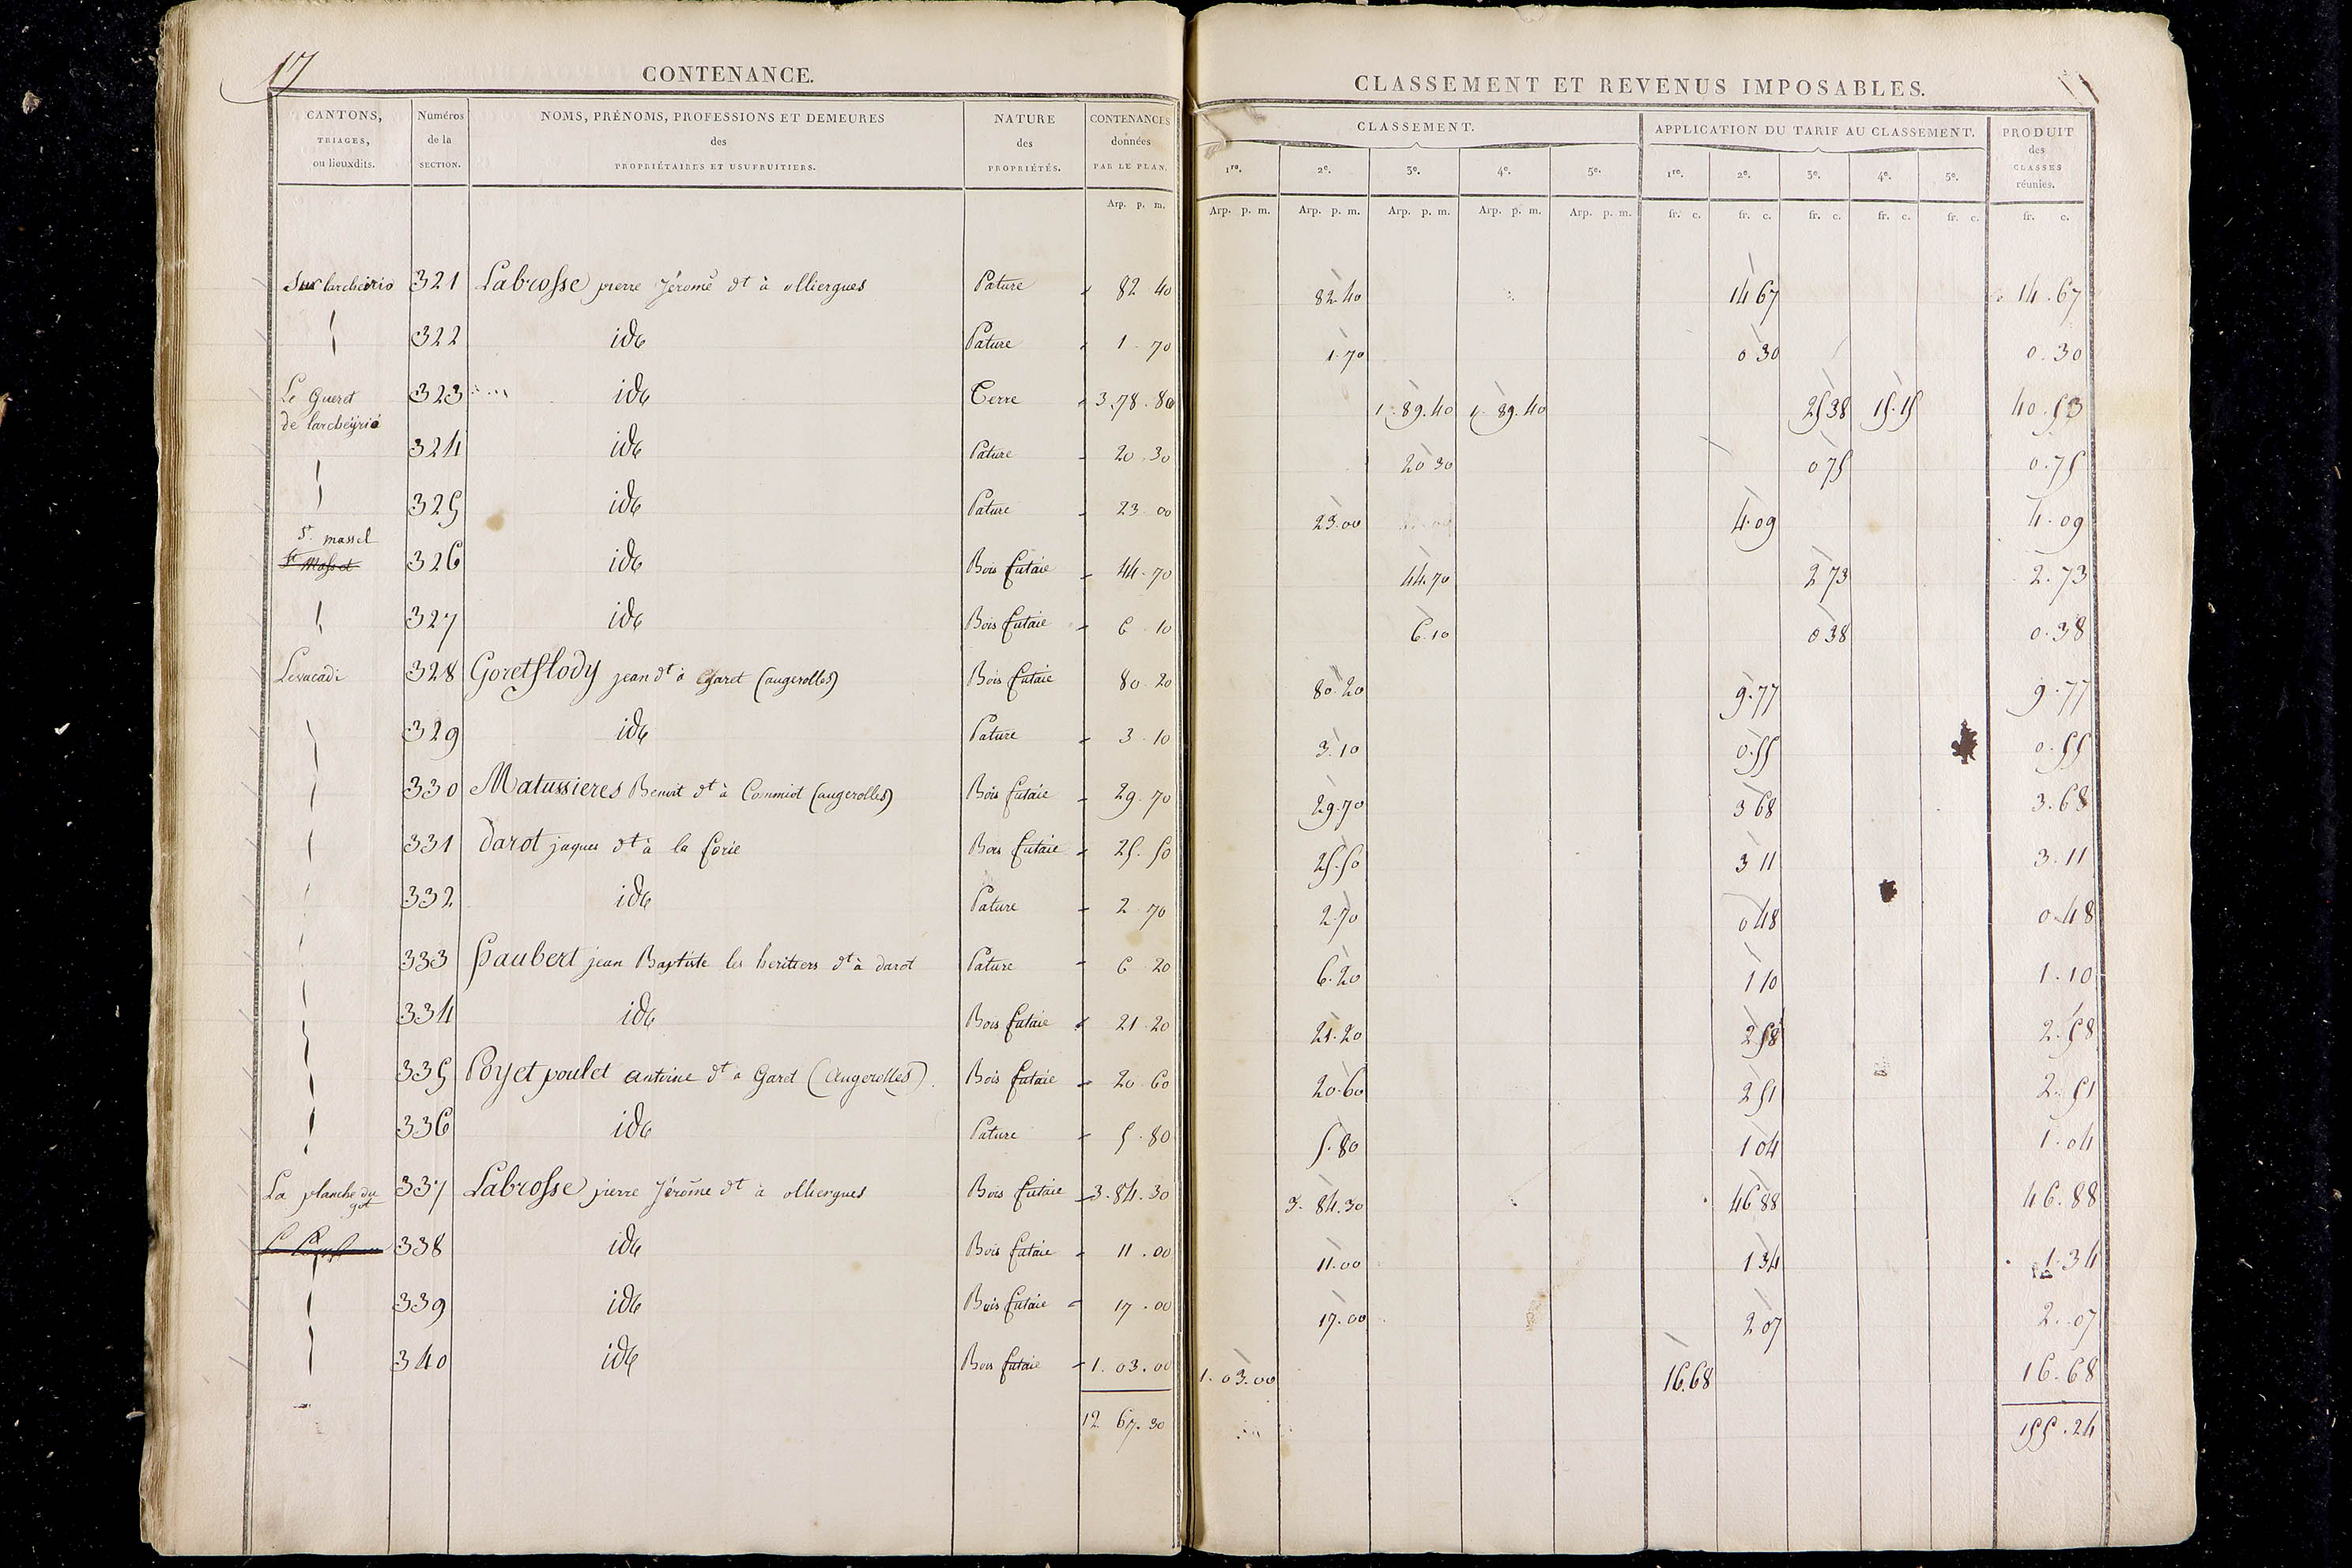 17
CONTENANCE.
CLASSEMENT ET REVENUS IMPOSABLES.
CANTONS, TRIAGES, ou lieuxdits.
Numéros de la SECTION.
NOMS, PRÉNOMS, PROFESSIONS ET DEMEURES des PROPRIÉTAIRES ET USUFRUITIERS.
NATURE des PROPRIÉTÉS.
CONTENANCES données PAR LE PLAN.
CLASSEMENT.
APPLICATION DU TARIF AU CLASSEMENT.
PRODUIT des CLASSES réunies.
1re. 2e. 3e. 4e. 5e. 1re. 2e. 3e. 4e. 5e.
Arp. p. m. Arp. p. m. Arp. p. m. Arp. p. m. Arp. p. m. Arp. p. m. fr. c. fr. c. fr. c. fr. c. fr. c. fr. c.
Sur larcheirio 321 Labrosse pierre Jérome dt à olliergues Pature 82 40 82.40 14 67 14.67
322 ide Pature 1 70 1.70 0 30 0.30
Le Gueret de larcheyrie 323 ide Terre 3.78.80 1.89.40 1.89.40 25 38 15.15 40.53
324 ide Pature 20.30 20 30 0 75 0.75
325 ide Pature 23 00 23.00 4.09 4.09
St massel
326 ide Bois futaie 44.70 44.70 2 73 2.73
327 ide Bois futaie 6 10 6.10 0 38 0.38
Levacadi 328 Goretflody jean dt à Garet (augerolles) Bois futaie 80 20 80.20 9.77 9.77
329 ide Pature 3.10 3.10 0.55 0.55
330 Matussieres Benoit dt à Commiot (augerolles) Bois futaie 29.70 29.70 3 68 3.68
331 darot jaques dt à la forie Bois futaie 25.50 25.50 3 11 3.11
332 ide Pature 2 70 2.70 0 48 0.48
333 faubert jean Baptiste les heritiers dt à darot Pature 6 20 6.20 1 10 1.10
334 ide Bois futaie 21 20 21.20 2 58 2.58
335 Poyet poulet antoine dt a Garet (augerolles). Bois futaie 20 60 20.60 2 51 2.51
336 ide Pature 5.80 5.80 1 04 1.04
La planche du got 337 Labrosse pierre Jérôme dt à olliergues Bois futaie 3.84.30 3.84.30 46 88 46.88
338 ide Bois futaie 11.00 11.00 1 34 1.34
339 ide Bois futaie 17.00 17.00 2 07 2.07
340 ide Bois futaie 1.03.00 1.03.00 16.68 16.68
12 67.30 155.24